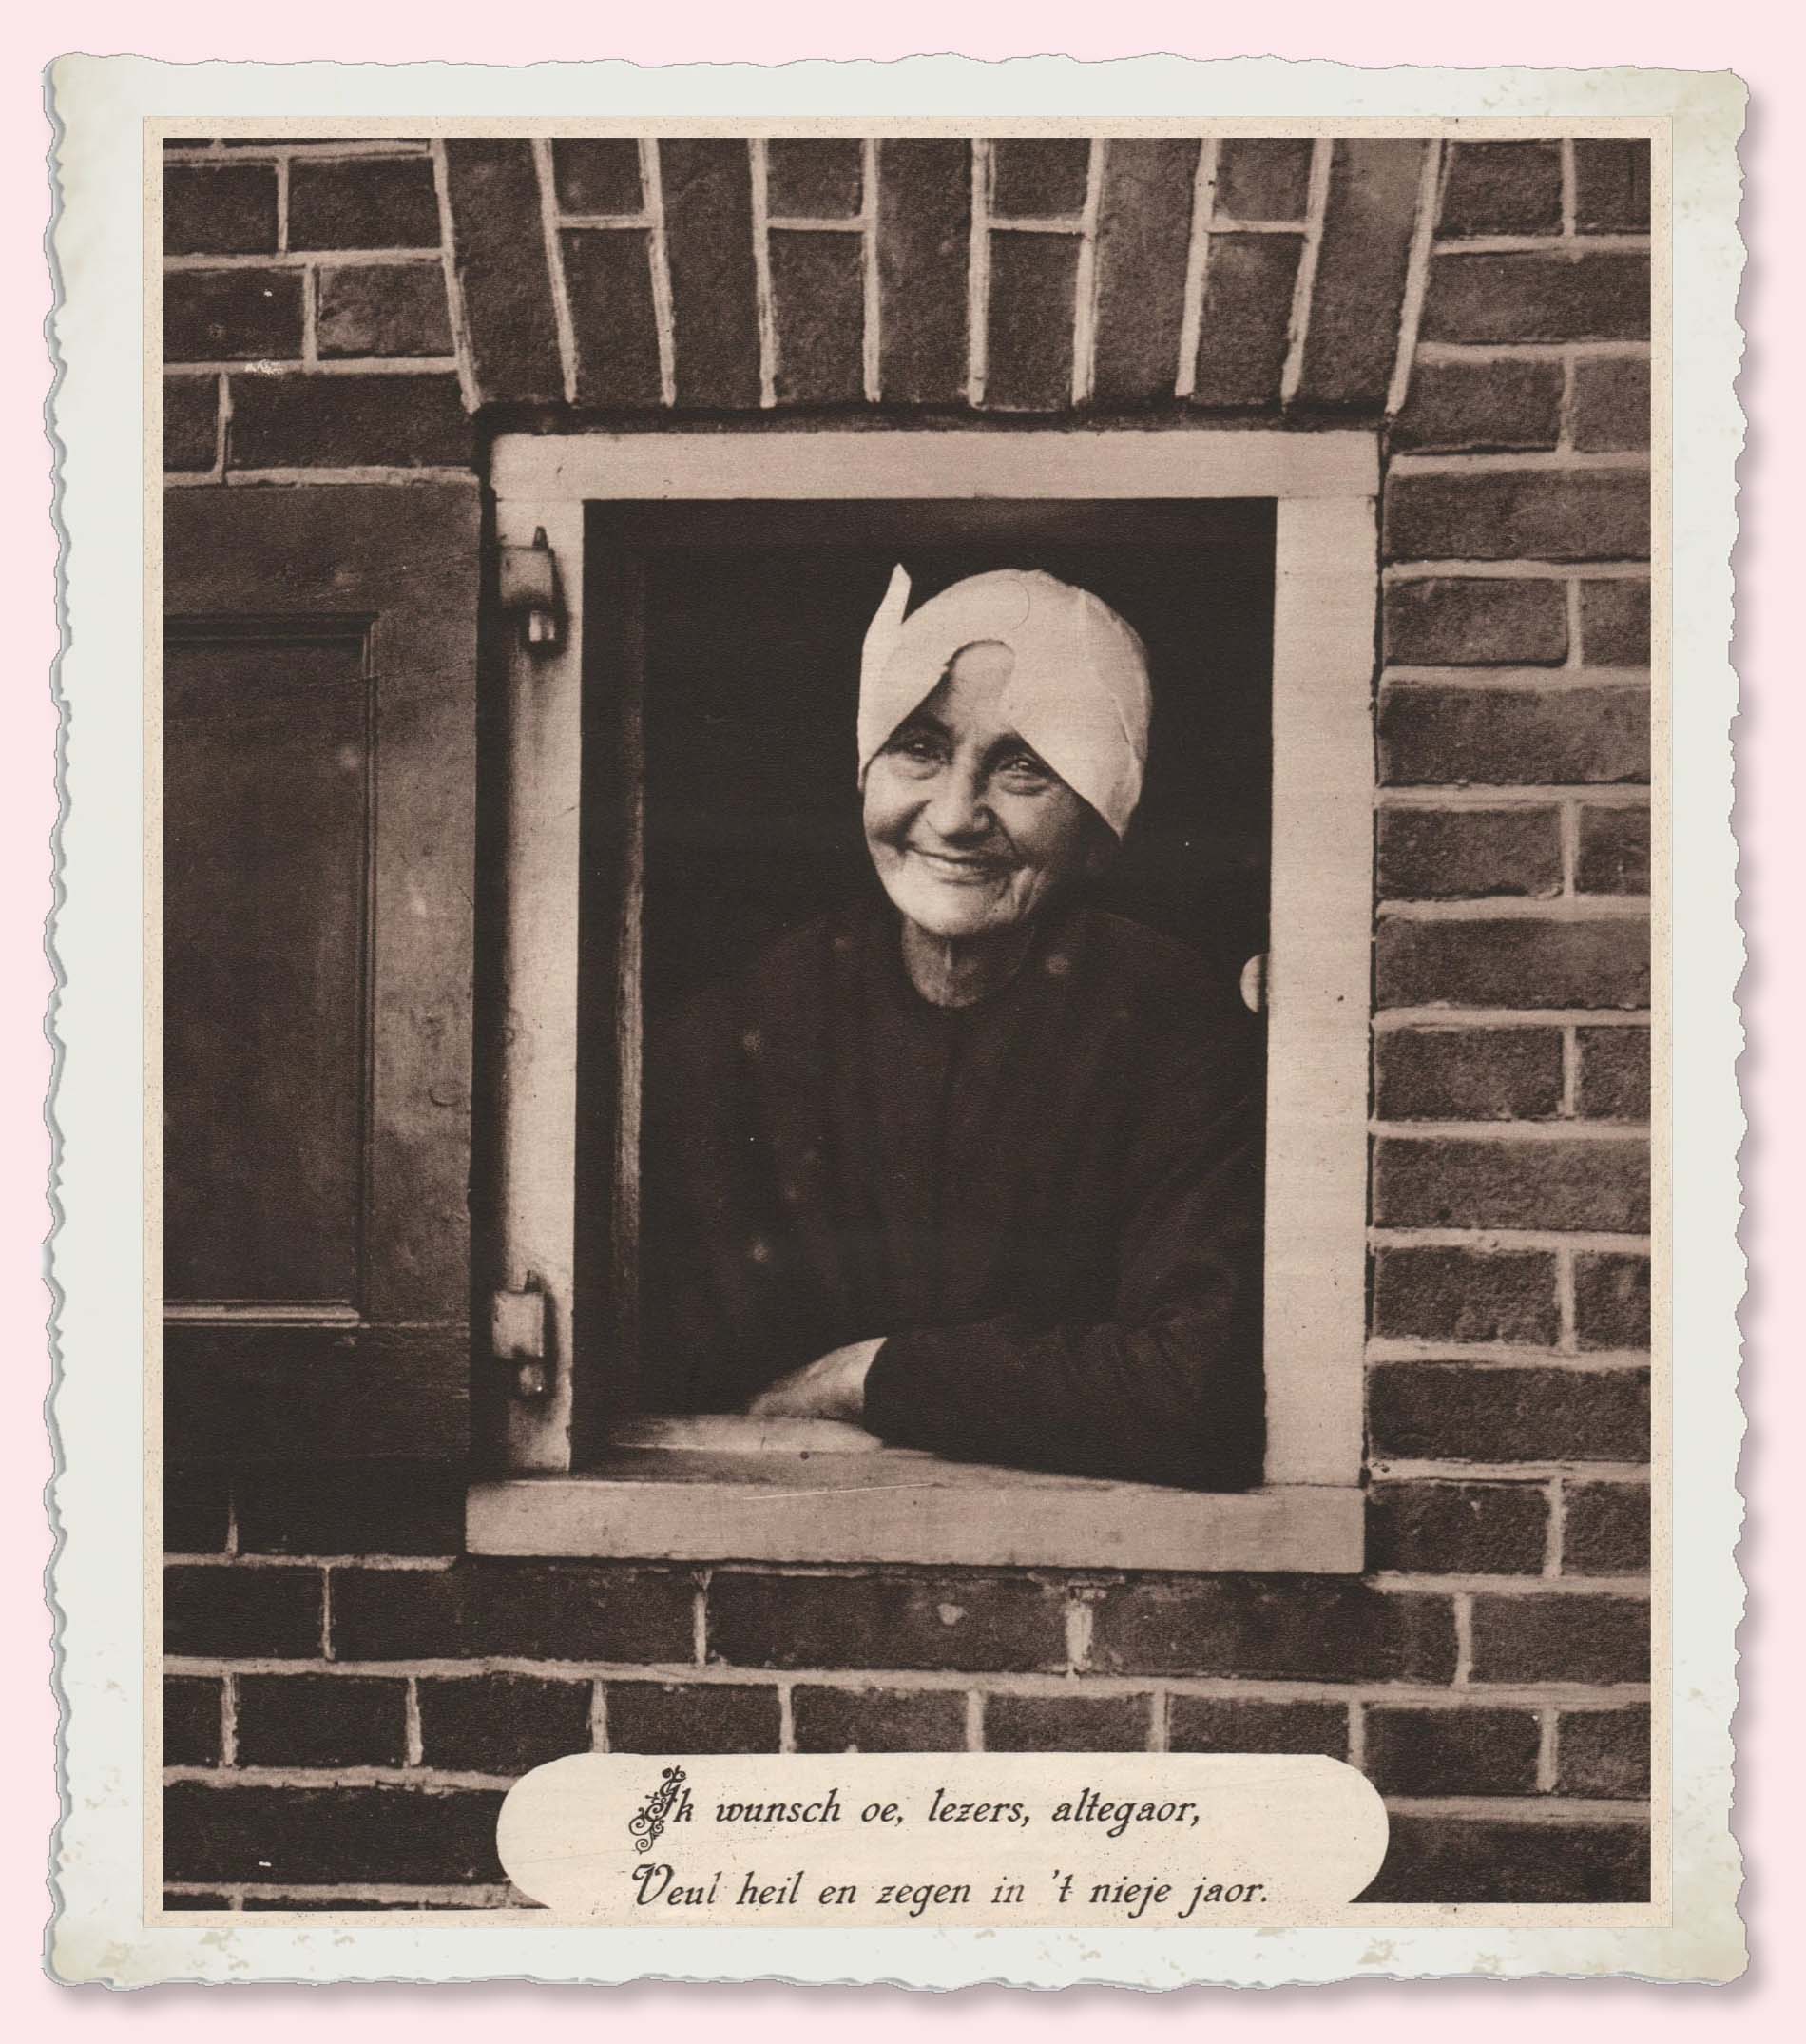 Ik wunsch oe, lezers, altegaor,
Veul heil en zegen in 't nieje jaor.